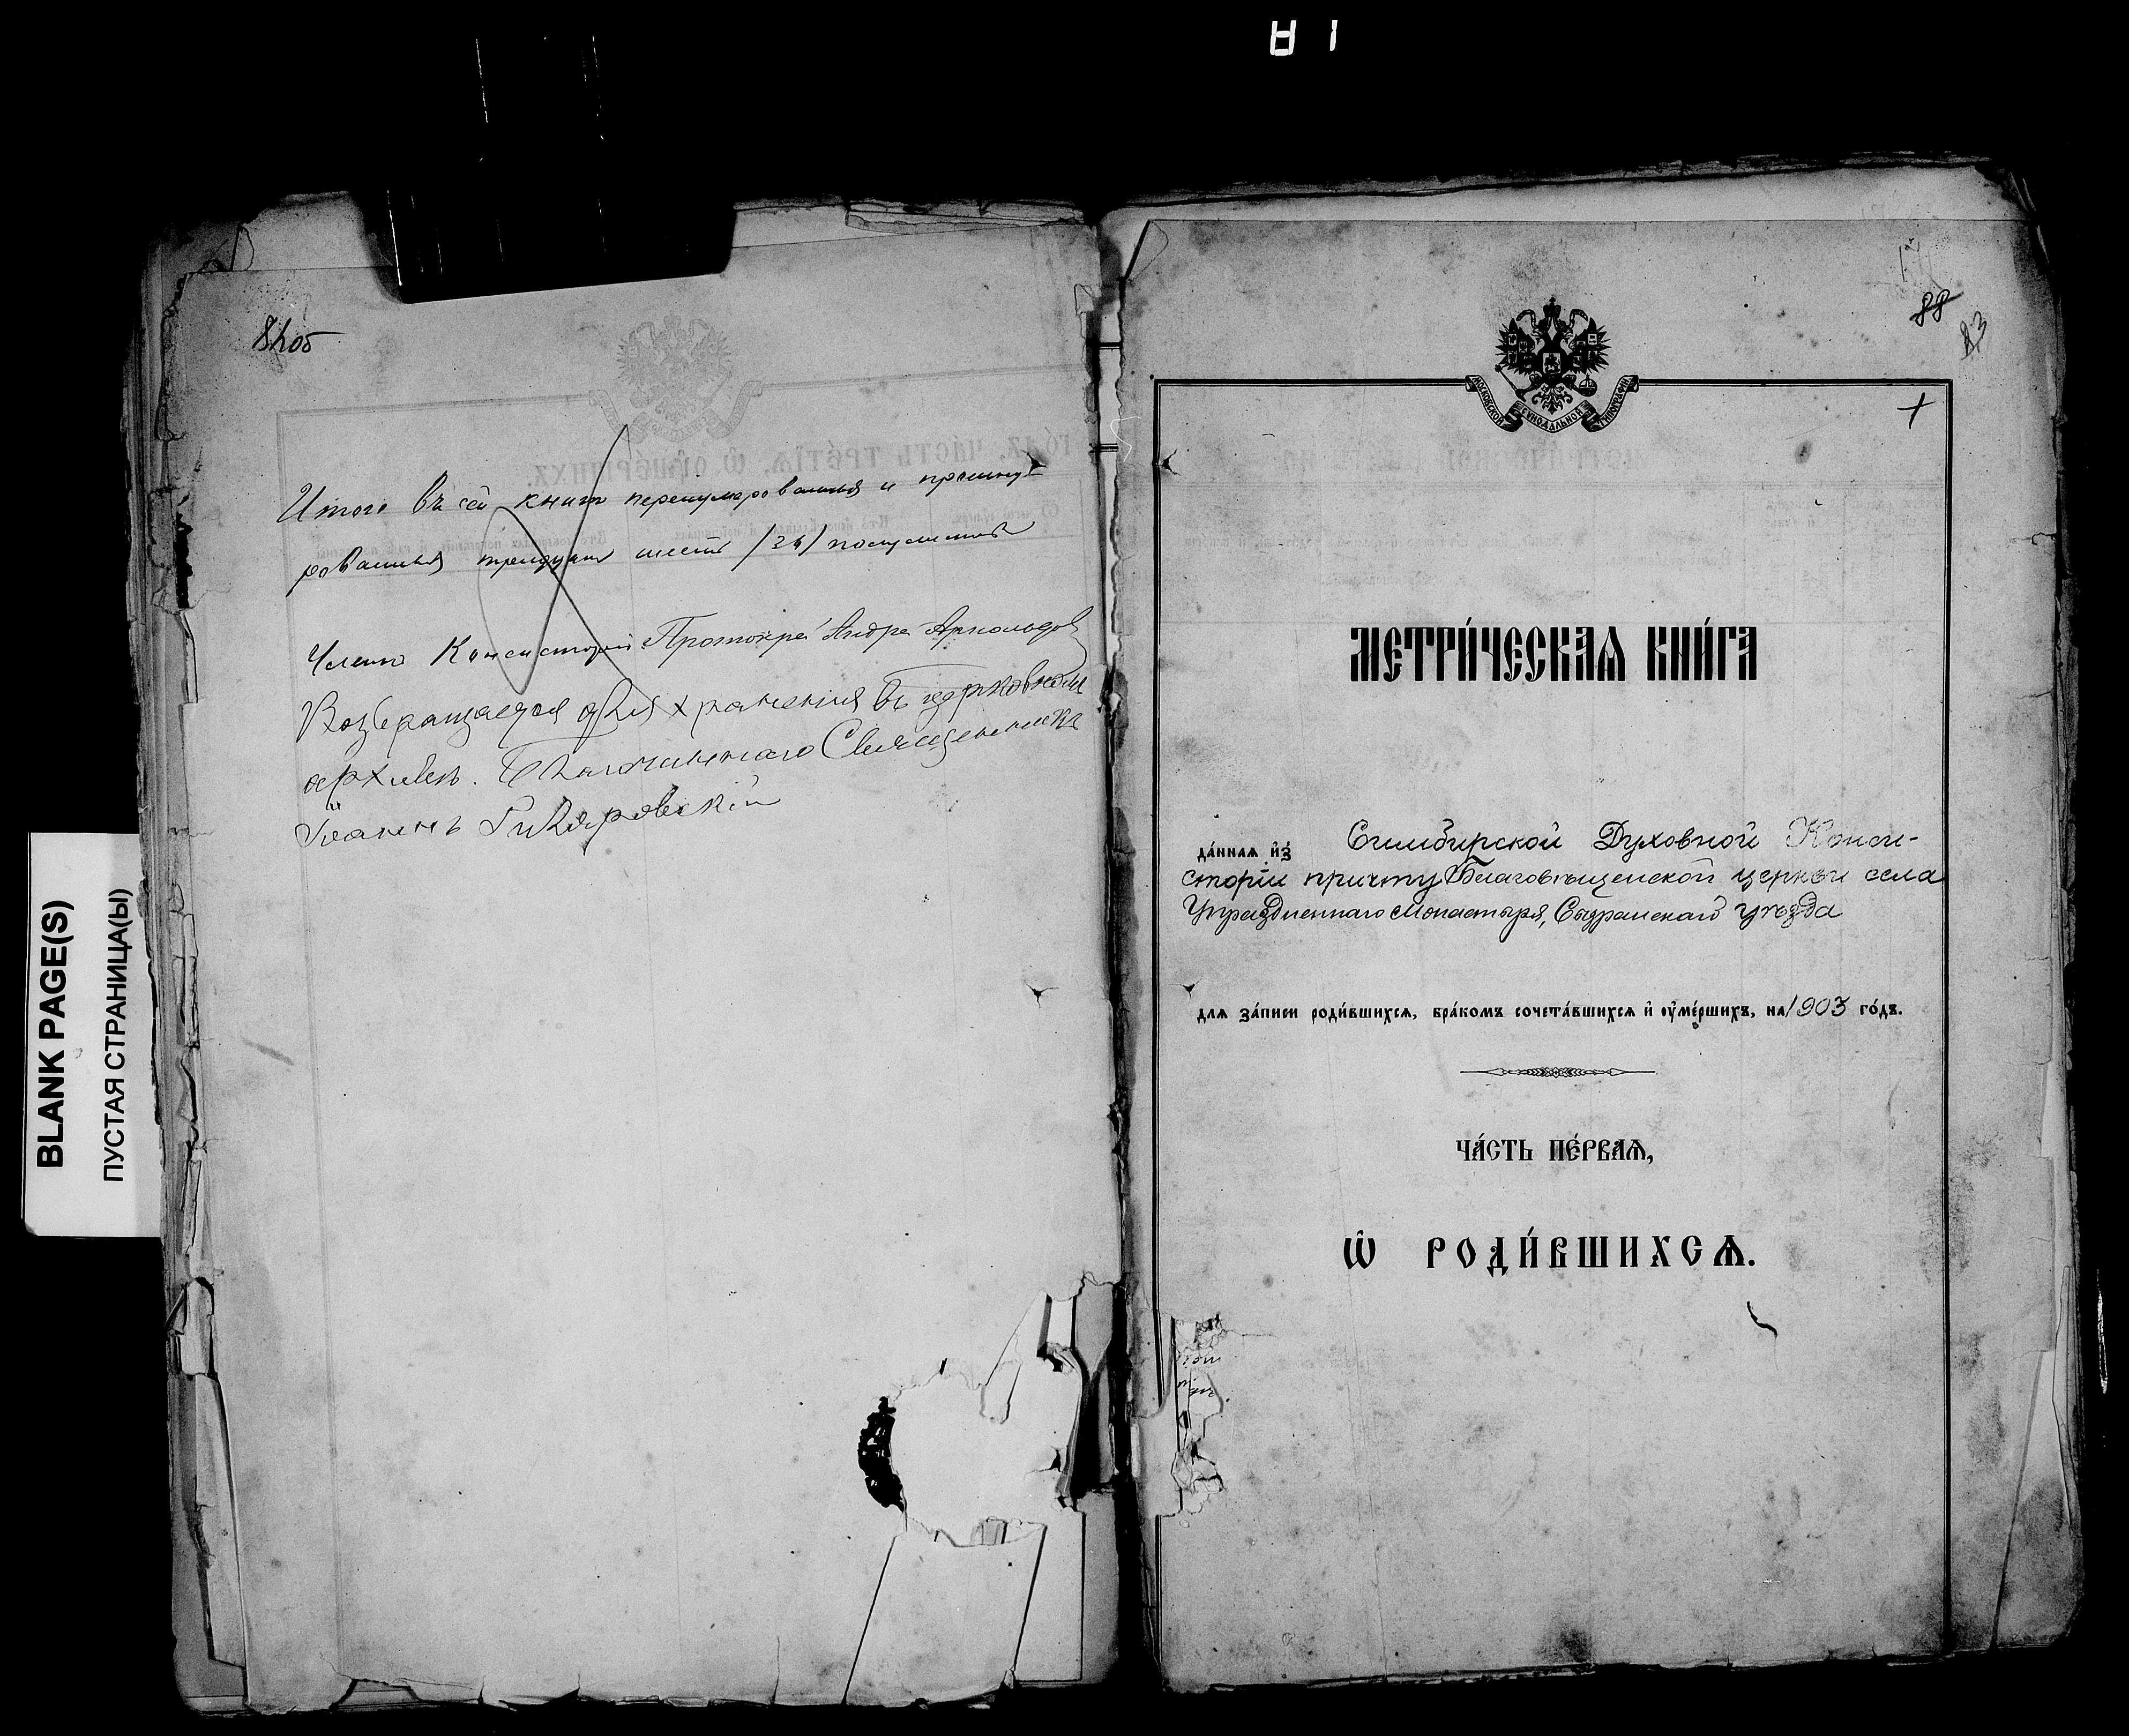 81
BLANK PAGE(S)
ПУСТАЯ СТРАНИЦА(Ы)
Итого въ сей книгѣ перенумерованныхъ и прошну-
рованныхъ тридцать шесть /36/ полулистовъ
Членъ Консисторіи Протоіерей Андрей Арнольдовъ
Возвращается для храненія въ церковномъ
архивѣ. Благочинный Священникъ
Іоаннъ Гиляровскій
88
83
МОСКОВСКОЙ СѴНОДАЛЬНОЙ ТИПОГРАФІИ
МЕТРИ́ЧЕСКАѦ КНИ́ГА
да́ннаѧ и҆з̾ Симбирской Духовной Конси-
сторіи причту Благовѣщенской церкви села
Упраздненнаго Монастыря, Сызранскаго уѣзда
для за́писи роди́вшихсѧ, бра́комъ сочета́вшихсѧ и҆ ᲂу҆ме́ршихъ, на 1903 го́дъ.
ЧА́СТЬ ПЕ́РВАѦ,
Ѽ РОДИ́ВШИХСѦ.